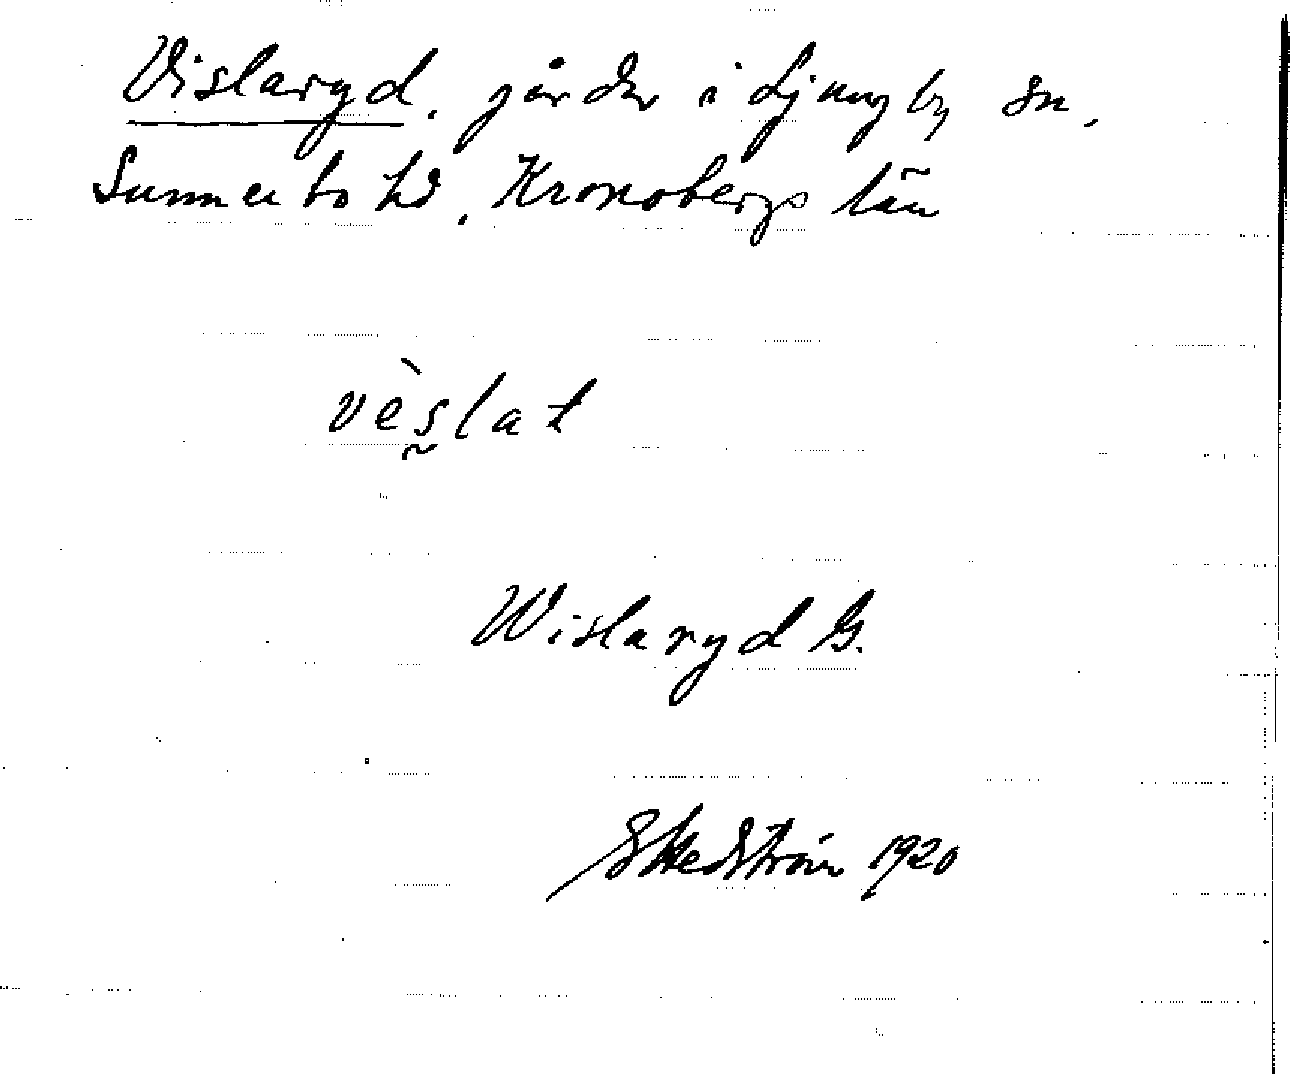 Vislaryd, gårdar i Ljungby sn,
Sunnerbo hd, Kronobergs län
vḛ̀slat
Wislaryd G.
E Hedström 1920